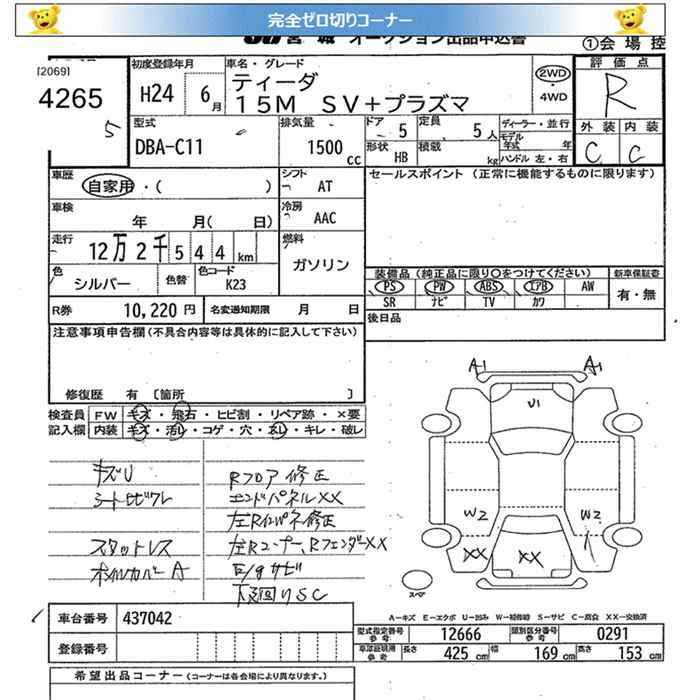 完全ゼロ切りコーナー
JU 宮城 オークション出品申込書
①会場控
[2069]
4265
5
初度登録年月
H24 6月
車名・グレード
ティーダ
15M SV+プラズマ
2WD
4WD
評価点
R
外装 内装
C C
型式
DBA-C11
排気量
1500 cc
ドア 5
定員 5人
形状 HB
積載 kg
ディーラー・並行
モデル年式 年
ハンドル 左・右
車歴
自家用・( )
シフト
AT
セールスポイント (正常に機能するものに限ります)
車検
年 月( 日)
冷房
AAC
走行
12万2千544km
燃料
ガソリン
色
シルバー
色替
色コード
K23
装備品 (純正品に限り○をつけてください)
新車保証書
PS PW ABS エアB AW
有・無
SR ナビ TV カワ
R券 10,220円
名変通知期限 月 日
後日品
注意事項申告欄 (不具合内容等は具体的に記入して下さい)
修復歴 有 〔箇所 〕
検査員 FW キズ・飛石・ヒビ割・リペア跡・×要
記入欄 内装 キズ・汚レ・コゲ・穴・スレ・キレ・破レ
キズU
シートヒビワレ
スタットレス
ホイルカバーA
Rフロア修正
エンドパネルXX
左Rインパネ修正
左Rコーナー、RフェンダーXX
E/gサビ
下廻りSC
A1 A1
U1
W2 W2
XX XX
1
スペア
A－キズ E－エクボ U－凹み W－補修跡 S－サビ C－腐食 XX－交換済
車台番号 437042
登録番号
型式指定番号 参考 12666
類別区分番号 参考 0291
車庫証明用 参考 長さ 425 cm 幅 169 cm 高さ 153 cm
希望出品コーナー (コーナーは各会場により異なります。)